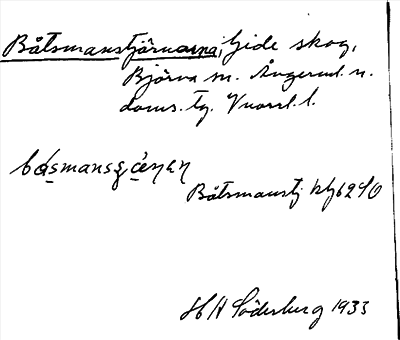 Båtsmanstjärnarna, Gide skog,
Björna sn. Ångerml. n.
doms. tg. Vnorrl. l.
båsmansʂɛ́ŋɛɳ
Båtsmanstj hbl 62 SO
H H Söderberg 1933